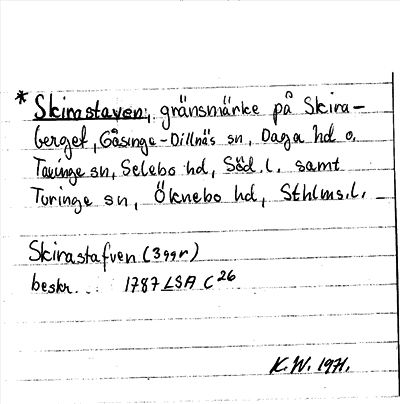 * Skirastaven, gränsmärke på Skira-
berget, Gåsinge-Dillnäs sn, Daga hd o.
Taxinge sn, Selebo hd, Söd. l. samt
Turinge sn, Öknebo hd, Sthlms. l.
Skirastafven (3 ggr)
beskr. .. 1787 LSA C 26
K. W. 1971.